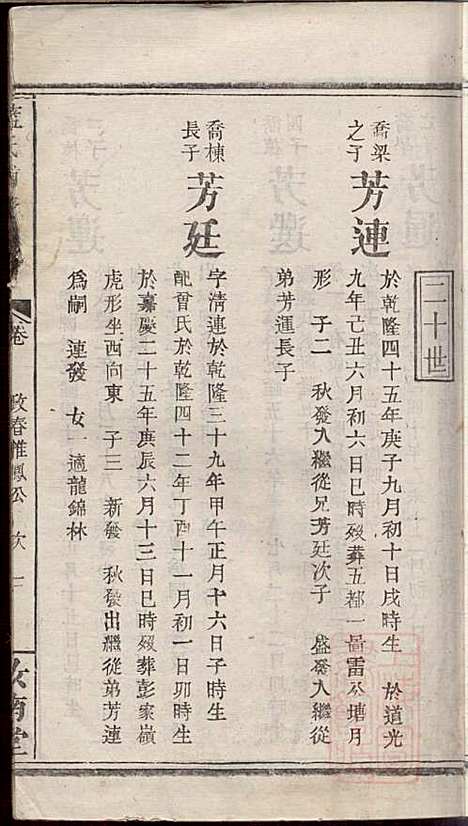 二十世
喬梁之子
芳連
於乾隆四十五年庚子九月初十日戌時生　於道光
九年己丑六月初六日巳時歿葬五都一啚雷公塘月
形　子二　秋發入繼從兄芳廷次子　盛發入繼從
弟芳運長子
喬棟長子
芳廷
字清連於乾隆三十九年甲午正月十六日子時生
配曾氏於乾隆四十二年丁酉十一月初一日卯時生
於嘉慶二十五年庚辰六月十三日巳時歿葬彭家嶺
虎形坐西向東　子三　新發　秋發出繼從弟芳連
為嗣　連發　女一適龍錦林
卷　政春惟鳳公